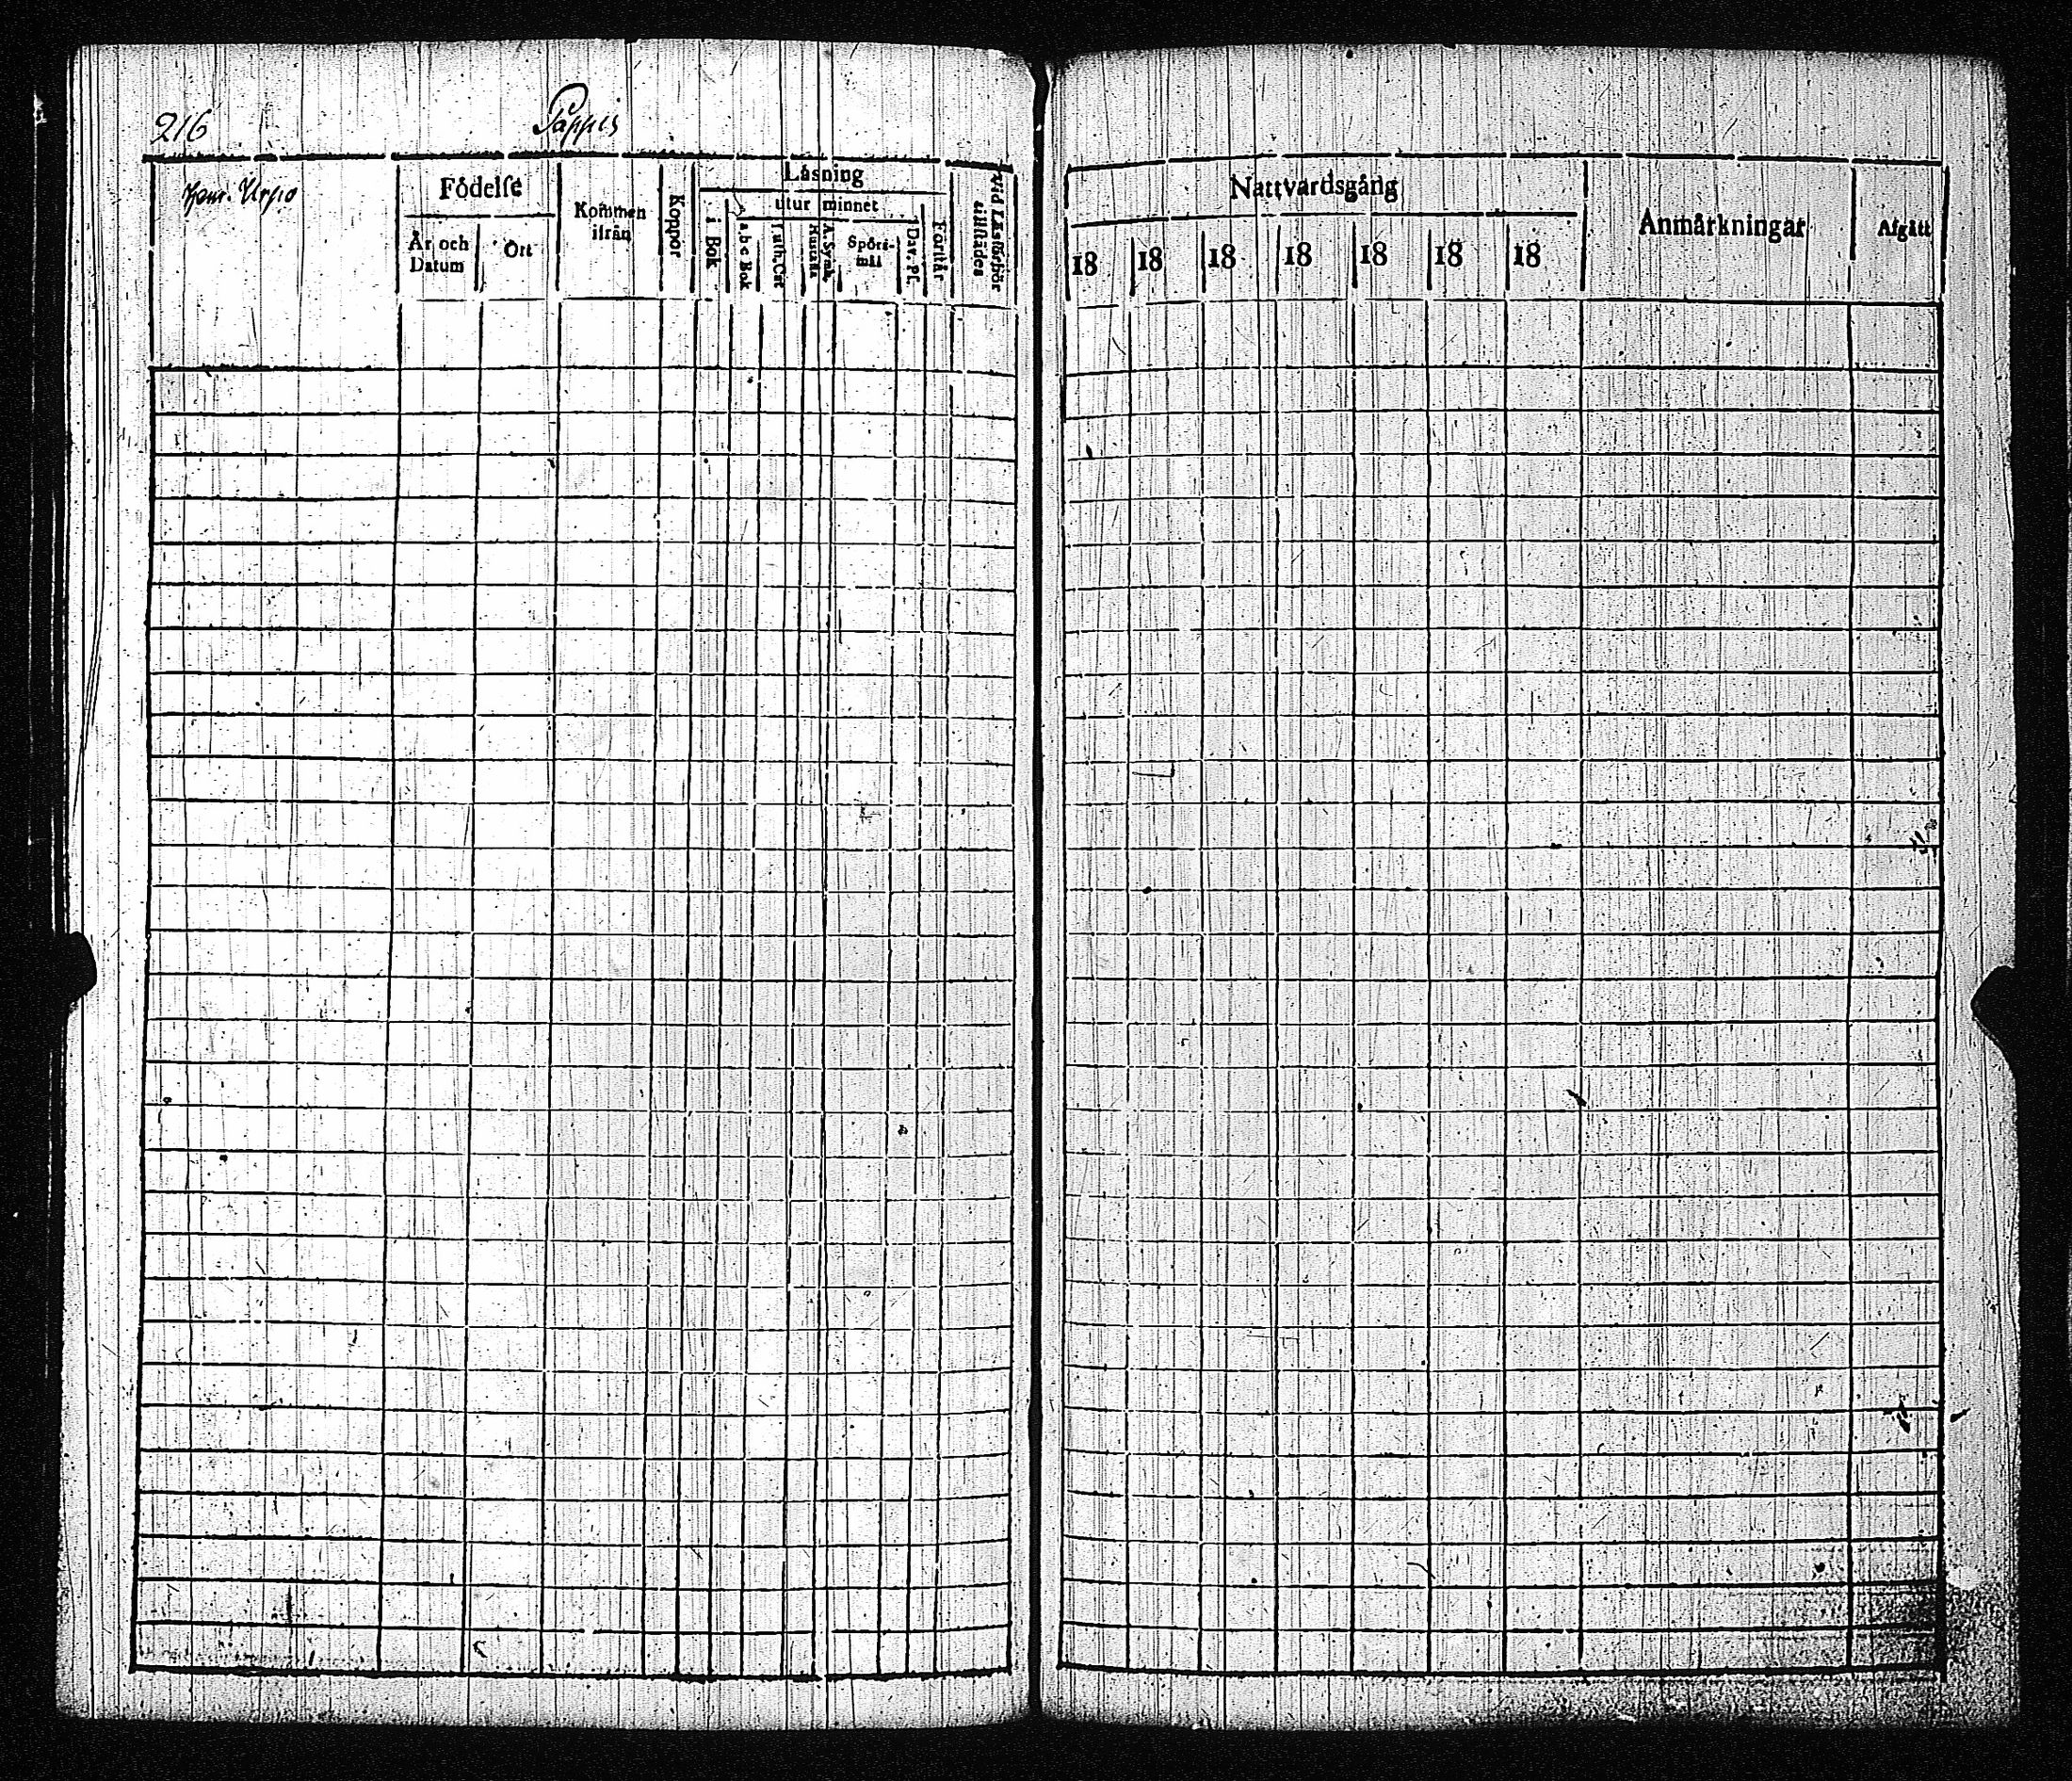 216 Pappis
Hem. Urpo
Födelse
År och Datum
Ort
Kommen ifrån
Koppor
Läsning
utur minnet
i Bok
a b c Bok
Luth. Cat
A. Symb.
Hustafla
Spörs-mål
Dav. Ps.
Förstår
Vid Läsförhör tillstädes
Nattvardsgång
18 18 18 18 18 18 18
Anmärkningar
Afgått